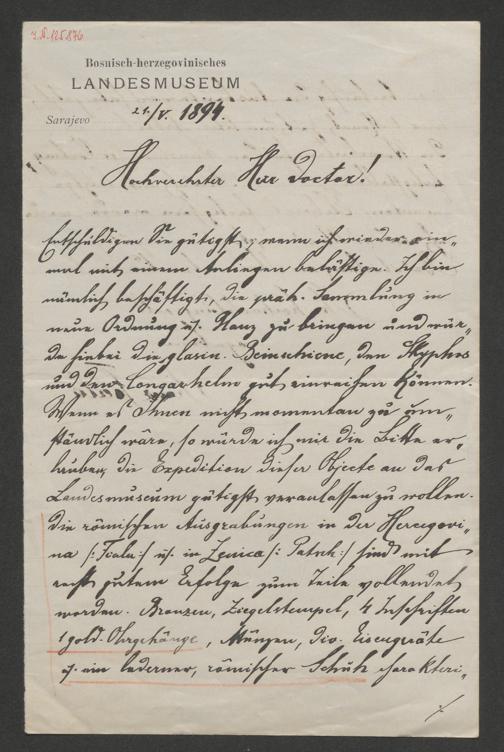 I.N. 125.876
Bosnisch-herzegovinisches
LANDESMUSEUM
Sarajevo 21/V. 1894.
Hochverehrter Herr Doctor!
Entschuldigen Sie gütigst, wenn ich wieder ein„
mal mit einem Anliegen belästige. Ich bin
nämlich beschäftigt, die präh. Sammlung in
neue Ordnung u. Glanz zu bringen und wür„
de hiebei die glasin. Beinschiene, den Skyphos
und den Longarhelm gut einreihen können.
Wenn es Ihnen nicht momentan zu um„
ständlich wäre, so würde ich mir die Bitte er„
lauben, die Expedition dieser Objecte an das
Landesmuseum gütigst veranlassen zu wollen.
Die römischen Ausgrabungen in der Hercegovi„
na /: Fiala :/ u. in Zenica /: Patsch :/ sind mit
recht gutem Erfolge zum Teile vollendet
worden. Bronzen, Ziegelstempel, 4 Inschriften
1 gold. Ohrgehänge, Münzen, div. Eisengeräte
u. ein lederner, römischer Schuh charakteri„